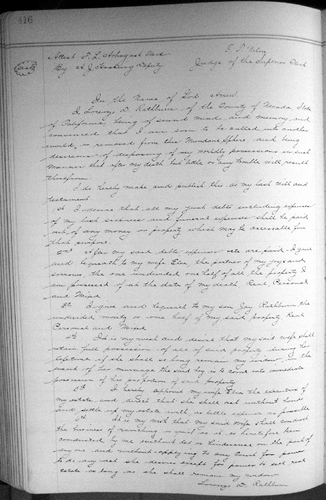 416
Attest T. L. Arbogast Clerk
By A. J. Hosking Deputy
Judge of the Superior Court
In the Name of God Amen
I Lorenzo D. Rathbun of the County of Nevada State
of California being of sound mind and memory, and
convinced that I am soon to be called into another
world, or removed from this Mundane Sphere and being
desirous of disposing of my worldly possessions in such
manner that after my death but little or any trouble will result
therefrom
I do hereby make and publish this as my last Will and
testament
1st I desire that all my just debts including expenses
of my last sickness and funeral expenses shall be paid
out of any money or property which may be accessible for
that purpose
2nd After my said debts expenses etc are paid I give
and bequeath to my wife the partner of my joys and
sorrows the one undivided one half of all the property I
am possessed of at the date of my death Real, Personal
and Mixed
3d I give and bequeath to my son Jay Rathbun the
undivided moiety or one half of my said property Real
Personal and Mixed
4th It is my wish and desire that my said wife shall
retain full possession of all of said property during her
lifetime if she shall so long remain my widow, in the
event of her marriage the said Jay is to come into immediate
possession of his portion of said property
5th I hereby appoint my wife the executrix of
my estate and direct that she shall act without bonds
and settle up my estate with as little expense as possible
6 It is my wish that my said wife shall conduct
the business of ranching as well as it has heretofore been
conducted by me without let or hindrance on the part of
any one and without applying to any court for power
to do any act she desires except for power to sell real
estate so long as she shall remain my widow
Lorenzo D. Rathbun